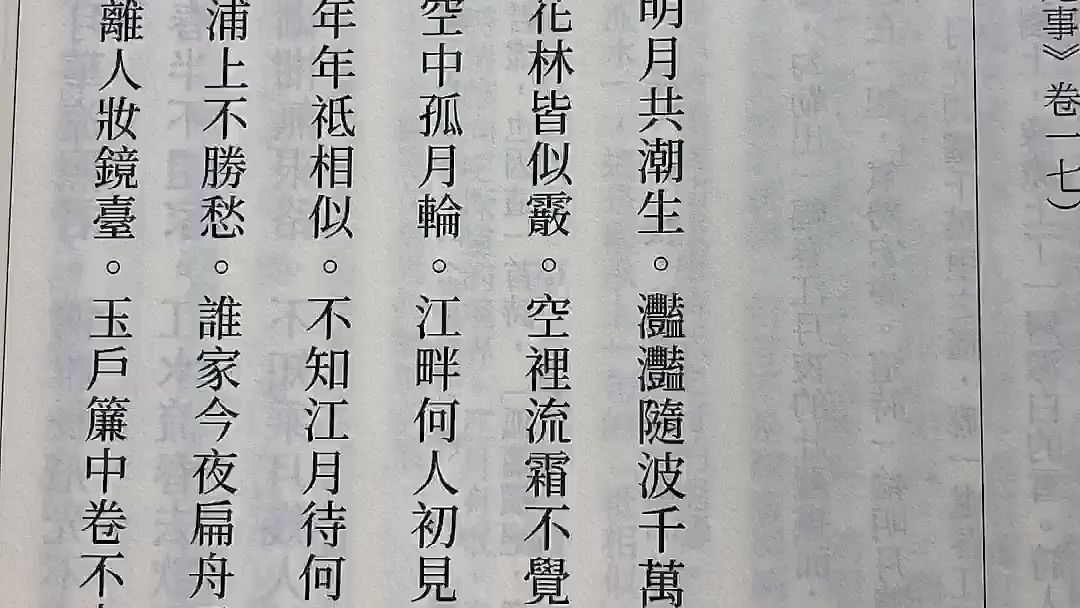 事》卷一七）
明月共潮生。灩灩隨波千萬
花林皆似霰。空裡流霜不覺
空中孤月輪。江畔何人初見
年年祗相似。不知江月待何
浦上不勝愁。誰家今夜扁舟
離人妝鏡臺。玉戶簾中卷不